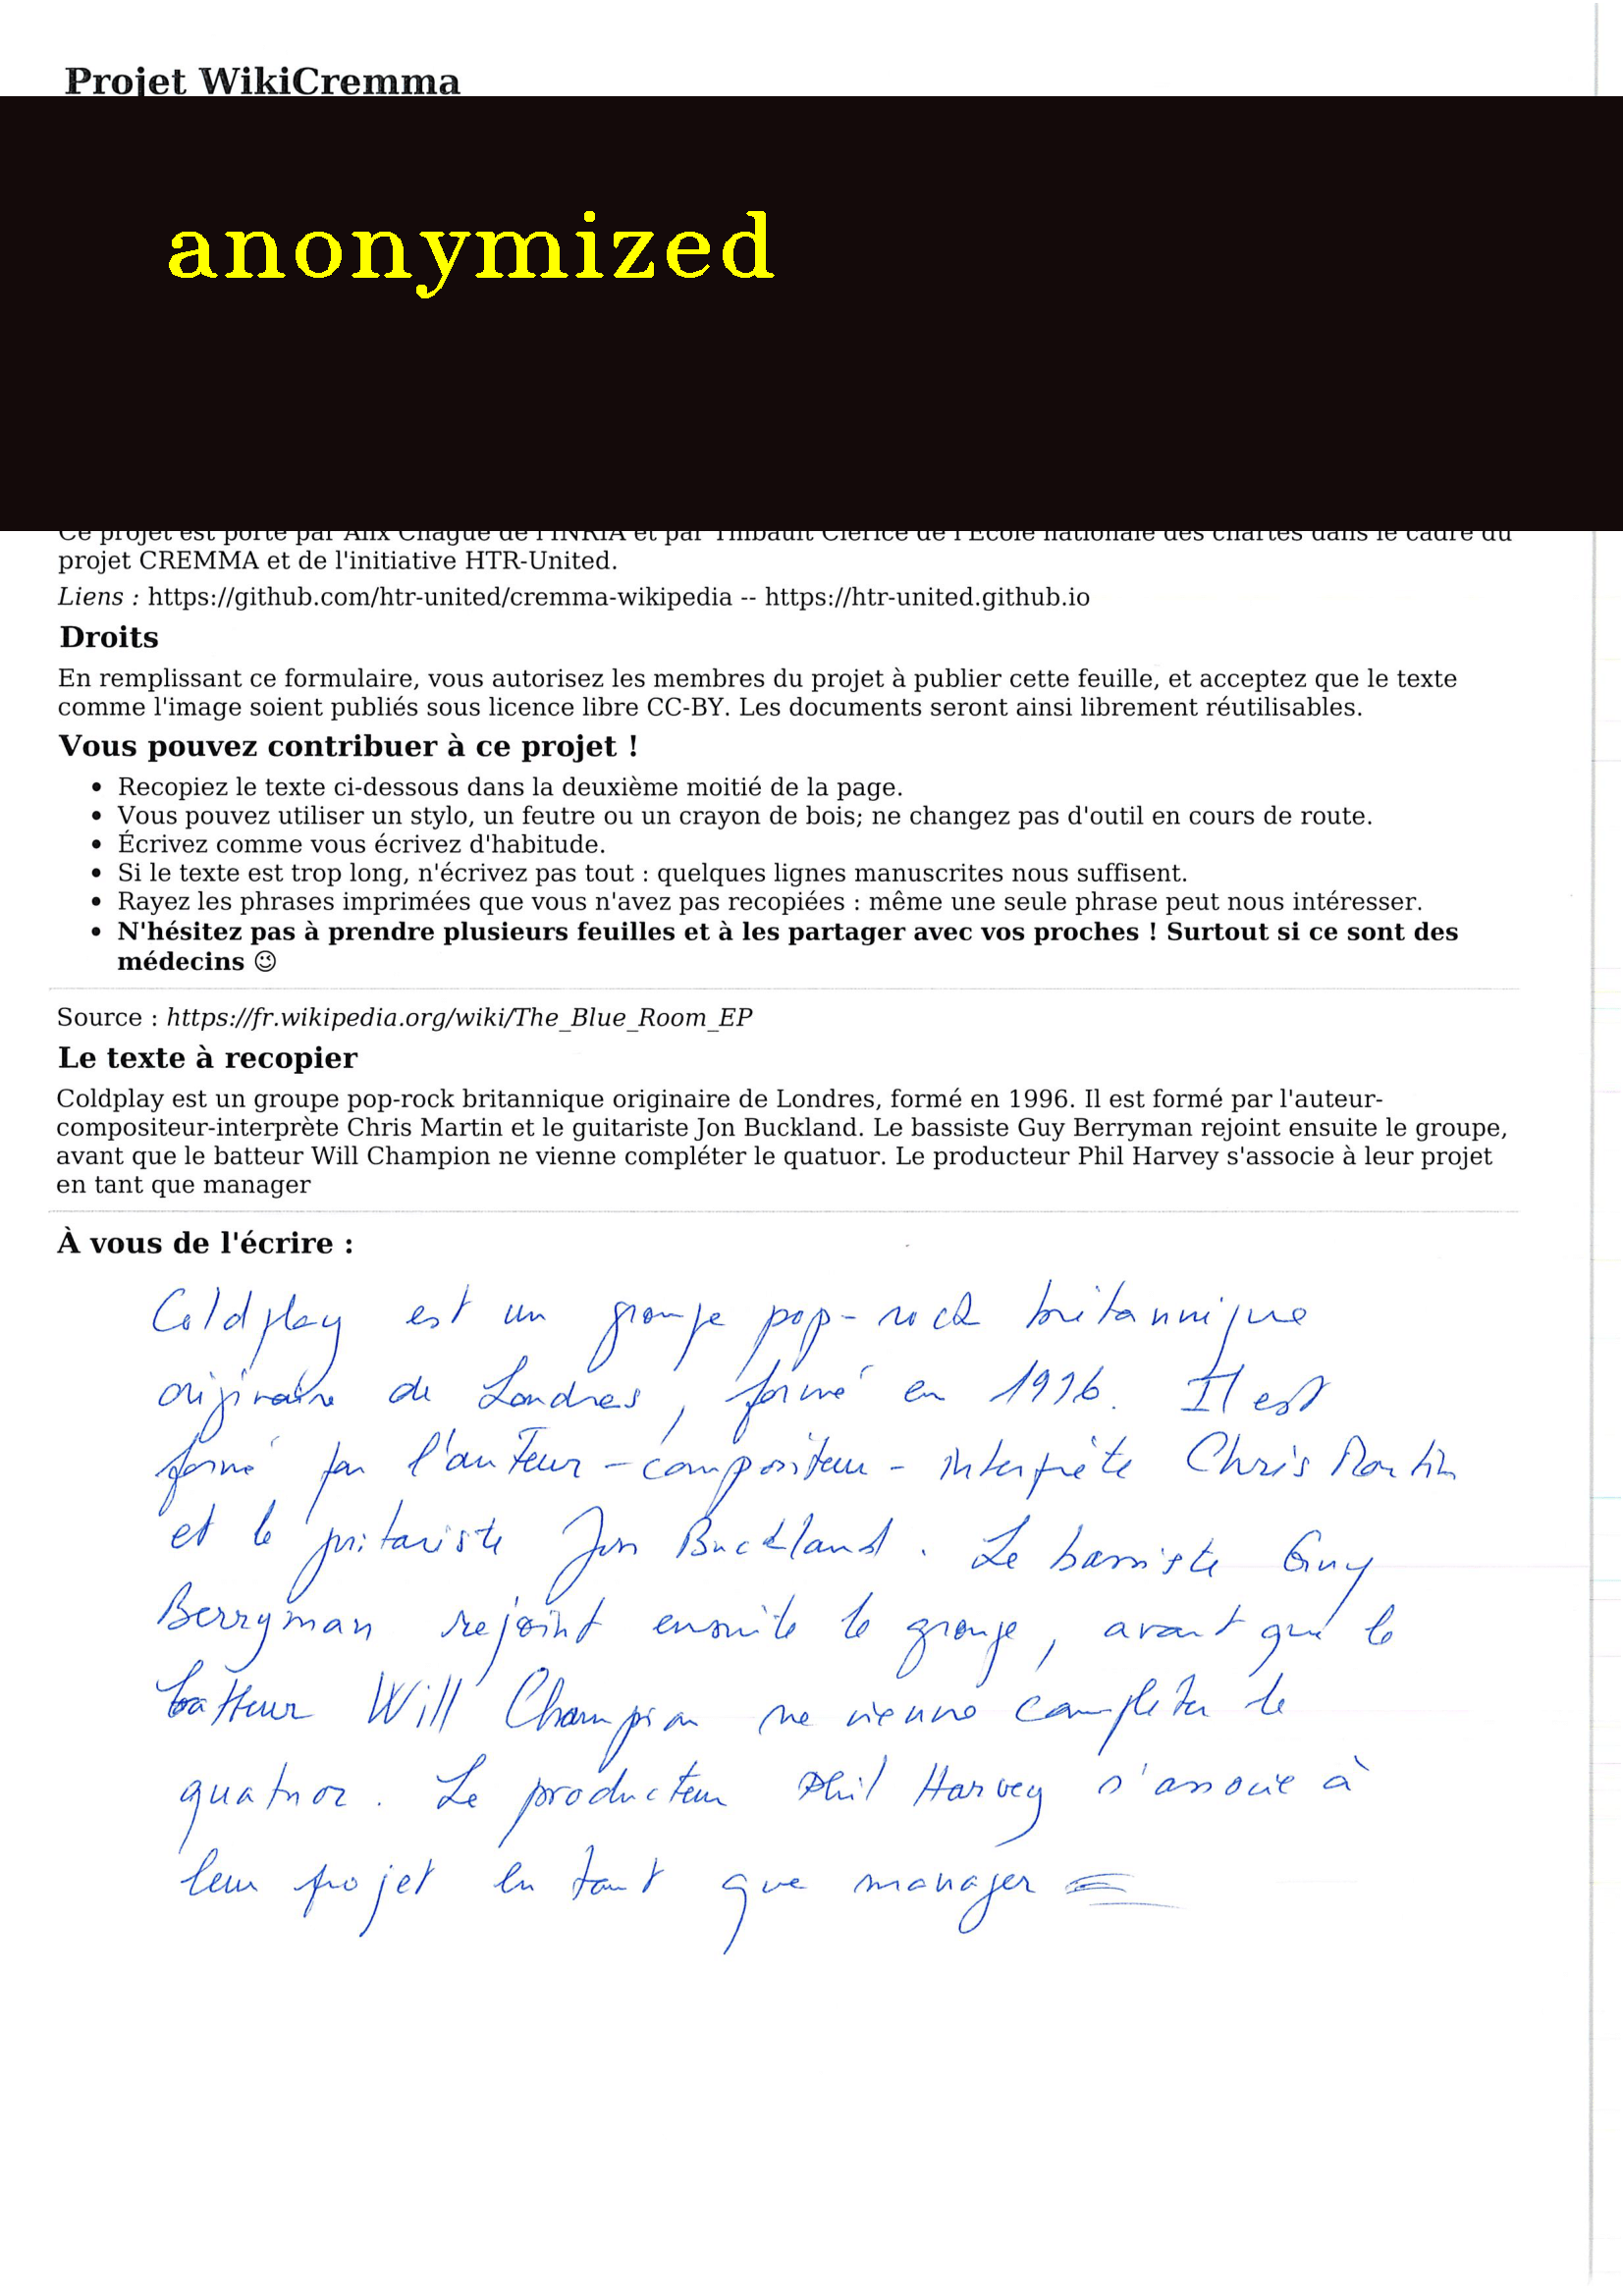 Projet WikiCremma
anonymized
Ce projet est porté par Alix Chagué de l'INRIA et par Thibault Clérice de l'École nationale des chartes dans le cadre du
projet CREMMA et de l'initiative HTR-United.
Liens : https://github.com/htr-united/cremma-wikipedia -- https://htr-united.github.io
Droits
En remplissant ce formulaire, vous autorisez les membres du projet à publier cette feuille, et acceptez que le texte
comme l'image soient publiés sous licence libre CC-BY. Les documents seront ainsi librement réutilisables.
Vous pouvez contribuer à ce projet !
• Recopiez le texte ci-dessous dans la deuxième moitié de la page.
• Vous pouvez utiliser un stylo, un feutre ou un crayon de bois; ne changez pas d'outil en cours de route.
• Écrivez comme vous écrivez d'habitude.
• Si le texte est trop long, n'écrivez pas tout : quelques lignes manuscrites nous suffisent.
• Rayez les phrases imprimées que vous n'avez pas recopiées : même une seule phrase peut nous intéresser.
• N'hésitez pas à prendre plusieurs feuilles et à les partager avec vos proches ! Surtout si ce sont des
médecins 😉
Source : https://fr.wikipedia.org/wiki/The_Blue_Room_EP
Le texte à recopier
Coldplay est un groupe pop-rock britannique originaire de Londres, formé en 1996. Il est formé par l'auteur-
compositeur-interprète Chris Martin et le guitariste Jon Buckland. Le bassiste Guy Berryman rejoint ensuite le groupe,
avant que le batteur Will Champion ne vienne compléter le quatuor. Le producteur Phil Harvey s'associe à leur projet
en tant que manager
À vous de l'écrire :
Coldplay est un groupe pop-rock britannique
originaire de Londres, formé en 1996. Il est
formé par l'auteur-compositeur-interprète Chris Martin
et le guitariste Jon Buckland. Le bassiste Guy
Berryman rejoint ensuite le groupe, avant que le
batteur Will Champion ne vienne compléter le
quatuor. Le producteur Phil Harvey s'associe à
leur projet en tant que manager